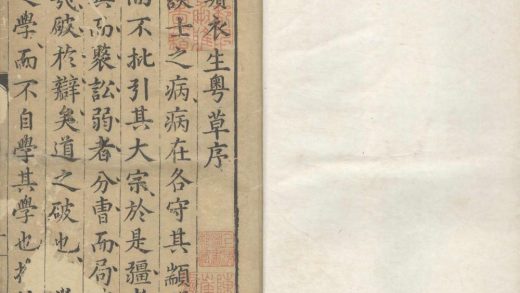 衣生粵草序
談士之病病在各守其顓
而不批引其大宗於是疆
而褧訟弱者分曹而局
破於辯矣道之破也
學而不自學其學也